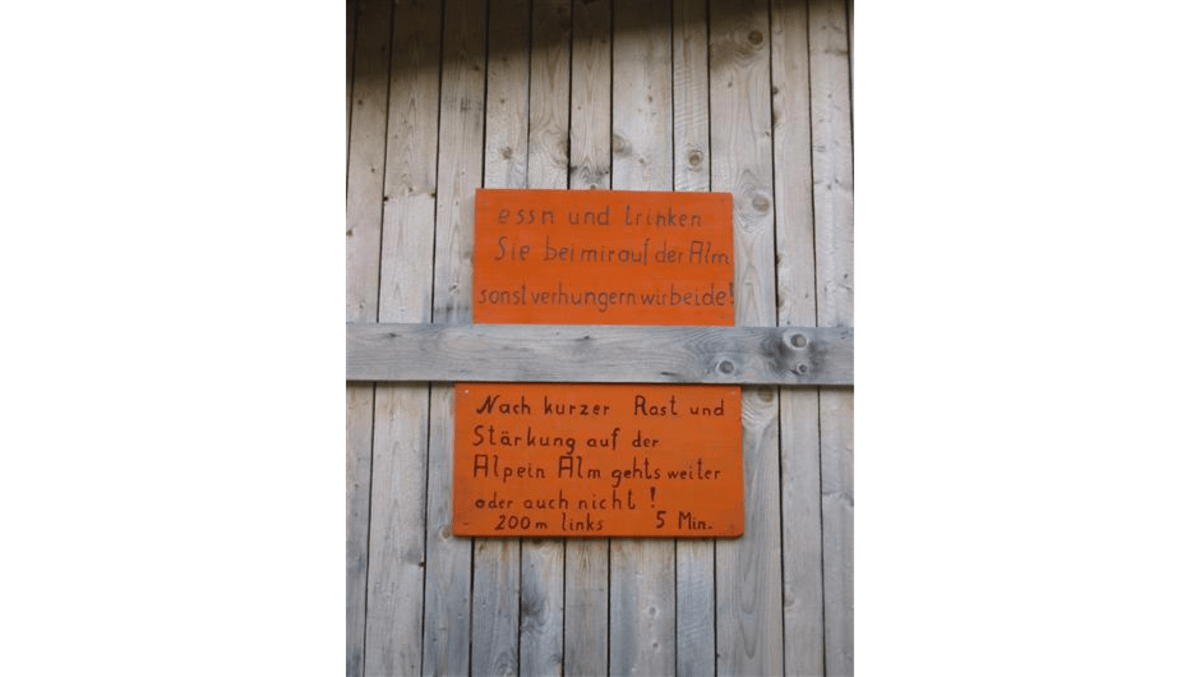 essn und trinken
Sie bei mir auf der Alm
sonst verhungern wir beide!
Nach kurzer Rast und
Stärkung auf der
Alpein Alm gehts weiter
oder auch nicht!
200m links 5 Min.